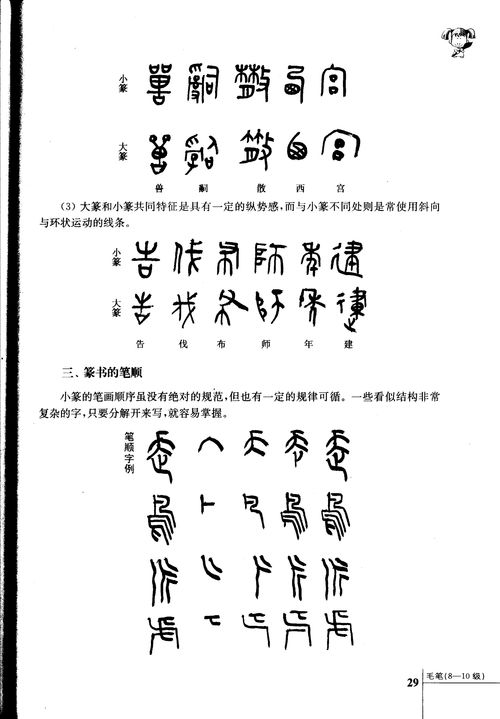 小篆
大篆
兽 嗣 散 西 宫
(3) 大篆和小篆共同特征是具有一定的纵势感,而与小篆不同处则是常使用斜向
与环状运动的线条。
小篆
大篆
告 伐 布 师 年 建
三、篆书的笔顺
小篆的笔画顺序虽没有绝对的规范,但也有一定的规律可循。一些看似结构非常
复杂的字,只要分解开来写,就容易掌握。
笔顺字例
29 毛笔(8—10级)